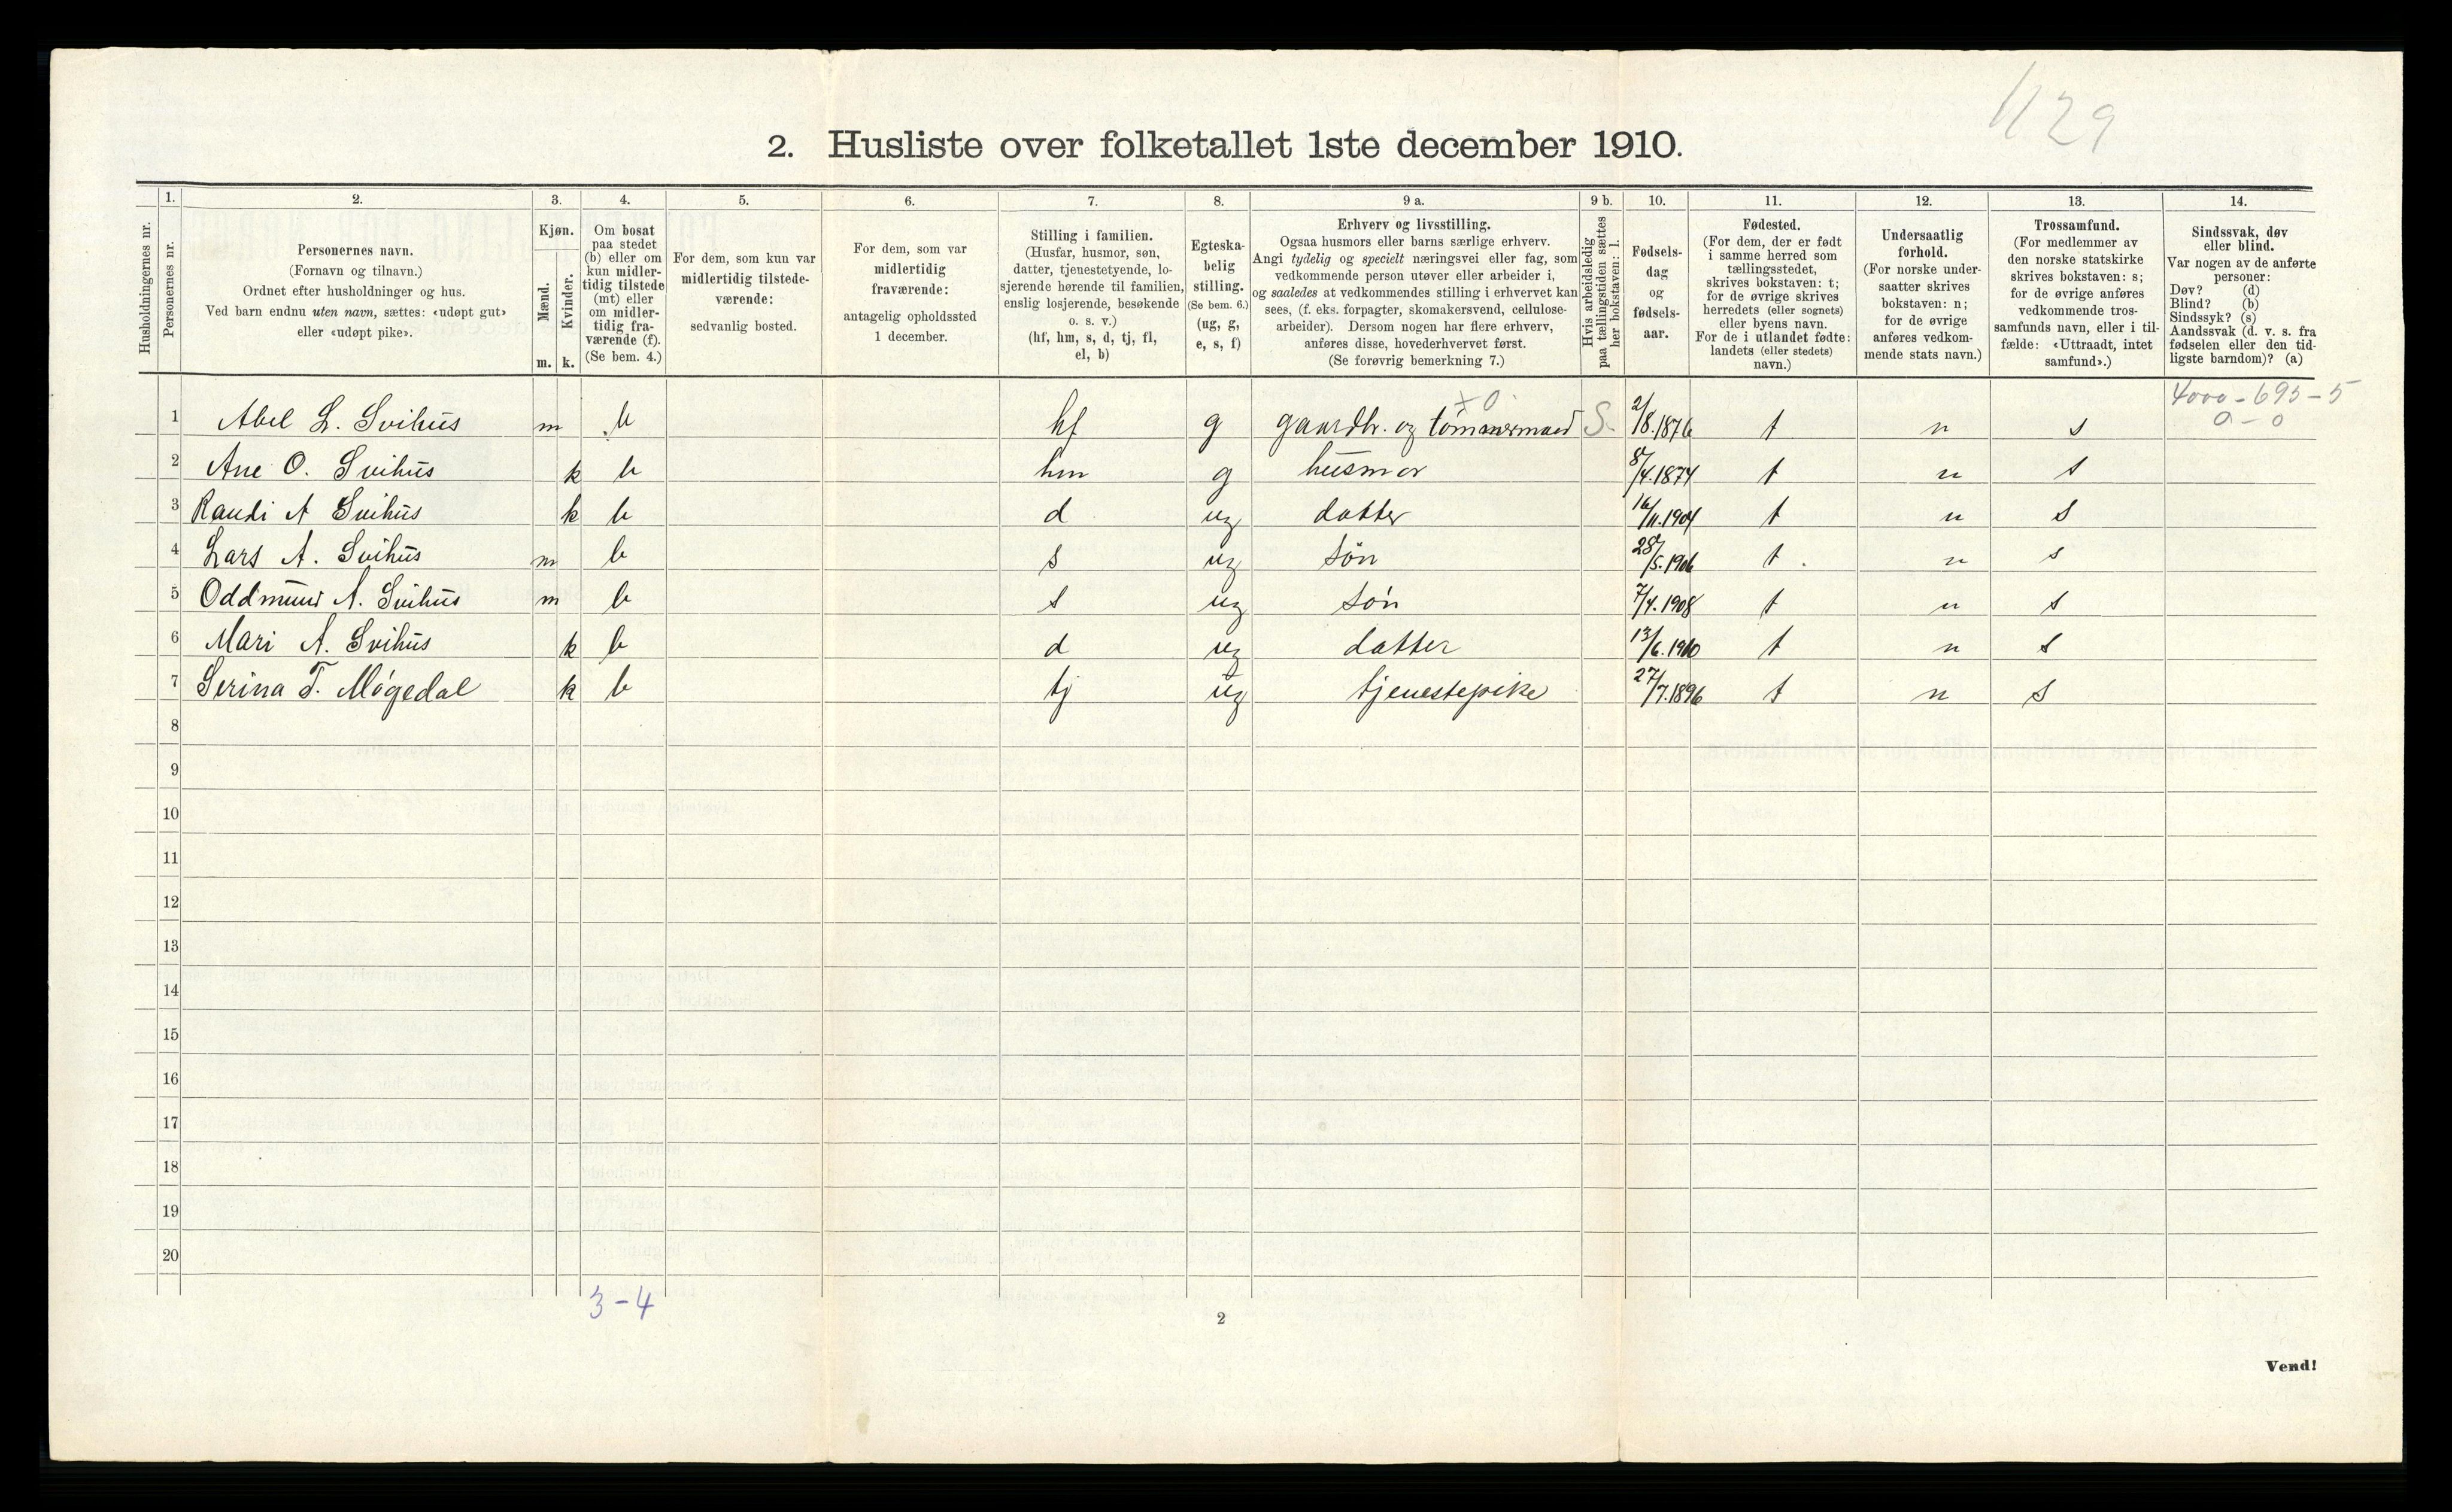 1129
2. Husliste over folketallet 1ste december 1910.
Husholdningernes nr.
1.
Personernes nr.
2.
Personernes navn.
(Fornavn og tilnavn.)
Ordnet efter husholdninger og hus.
Ved barn endnu uten navn, sættes: «udøpt gut»
eller «udøpt pike».
3.
Kjøn.
Mænd.
Kvinder.
m. k.
4.
Om bosat
paa stedet
(b) eller om
kun midler-
tidig tilstede
(mt) eller
om midler-
tidig fra-
værende (f).
(Se bem. 4.)
5.
For dem, som kun var
midlertidig tilstede-
værende:
sedvanlig bosted.
6.
For dem, som var
midlertidig
fraværende:
antagelig opholdssted
1 december.
7.
Stilling i familien.
(Husfar, husmor, søn,
datter, tjenestetyende, lo-
sjerende hørende til familien,
enslig losjerende, besøkende
o. s. v.)
(hf, hm, s, d, tj, fl,
el, b)
8.
Egteska-
belig
stilling.
(Se bem. 6.)
(ug, g,
e, s, f)
9 a.
Erhverv og livsstilling.
Ogsaa husmors eller barns særlige erhverv.
Angi tydelig og specielt næringsvei eller fag, som
vedkommende person utøver eller arbeider i,
og saaledes at vedkommendes stilling i erhvervet kan
sees, (f. eks. forpagter, skomakersvend, cellulose-
arbeider). Dersom nogen har flere erhverv,
anføres disse, hovederhvervet først.
(Se forøvrig bemerkning 7.)
9 b.
Hvis arbeidsledig
paa tællingstiden sættes
her bokstaven: l.
10.
Fødsels-
dag
og
fødsels-
aar.
11.
Fødested.
(For dem, der er født
i samme herred som
tællingsstedet,
skrives bokstaven: t;
for de øvrige skrives
herredets (eller sognets)
eller byens navn.
For de i utlandet fødte:
landets (eller stedets)
navn.)
12.
Undersaatlig
forhold.
(For norske under-
saatter skrives
bokstaven: n;
for de øvrige
anføres vedkom-
mende stats navn.)
13.
Trossamfund.
(For medlemmer av
den norske statskirke
skrives bokstaven: s;
for de øvrige anføres
vedkommende tros-
samfunds navn, eller i til-
fælde: «Uttraadt, intet
samfund».)
14.
Sindssvak, døv
eller blind.
Var nogen av de anførte
personer:
Døv? (d)
Blind? (b)
Sindssyk? (s)
Aandssvak (d. v. s. fra
fødselen eller den tid-
ligste barndom)? (a)
+0. 4000-695-5
1 Abel L. Svihus m b hf g gaardbr. og tømmermand S. 2/8.1876 t n s 0-0
2 Ane O. Svihus k b hm g husmor 8/4.1874 t n s
3 Raudi A Svihus k b d ug datter 16/11.1904 t n s
4 Lars A. Svihus m b s ug søn 28/5.1906 t n s
5 Oddmund A. Svihus m b s ug søn 7/4.1908 t n s
6 Mari A. Svihus k b d ug datter 13/6.1910 t n s
7 Serina T. Møgedal k b tj ug tjenestepike 27/7.1896 t n s
8
9
10
11
12
13
14
15
16
17
18
19
20
3-4
2
Vend!